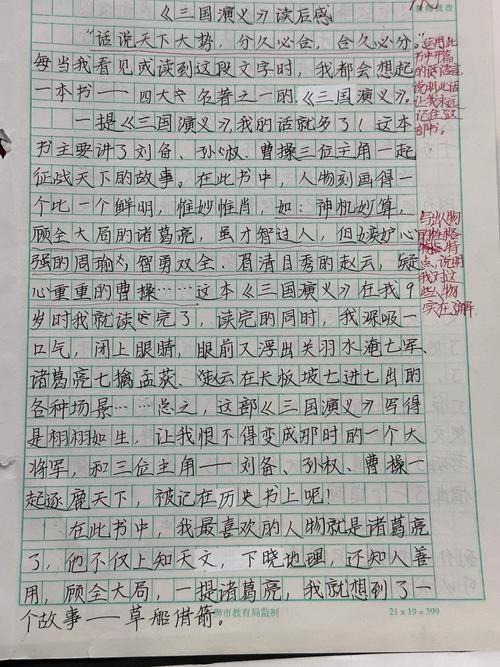 《三国演义》读后感
"话说天下大势,分久必合,合久必分。"
每当我看见或读到这段文字时,我都会想起
一本书——四大名著之一的《三国演义》。
一提《三国演义》,我的话就多了!这本
书主要讲了刘备、孙权、曹操三位主角一起
征战天下的故事。在此书中,人物刻画得一
个比一个鲜明,惟妙惟肖,如:神机妙算,
顾全大局的诸葛亮,虽才智过人,但嫉妒心
强的周瑜,智勇双全、眉清目秀的赵云,疑
心重重的曹操……这本《三国演义》在我9
岁时我就读完了,读完的同时,我深吸一
口气,闭上眼睛,眼前又浮出关羽水淹七军、
诸葛亮七擒孟获、赵云在长板坡七进七出的
各种场景……总之,这部《三国演义》写得
是栩栩如生,让我恨不得变成那时的一个大
将军,和三位主角——刘备、孙权、曹操一
起逐鹿天下,被记在历史书上呢!
在此书中,我最喜欢的人物就是诸葛亮
了,他不仅上知天文,下晓地理,还知人善
用,顾全大局,一提诸葛亮,我就想到了一
个故事——草船借箭。
市教育局监制
21×19=399
教师批改
运用此
书中开篇
的两话语,
说明此话
让我永远
记在了这
部书。
与出人物
的性格
特
点,说明
我对这
些人物
实在了解